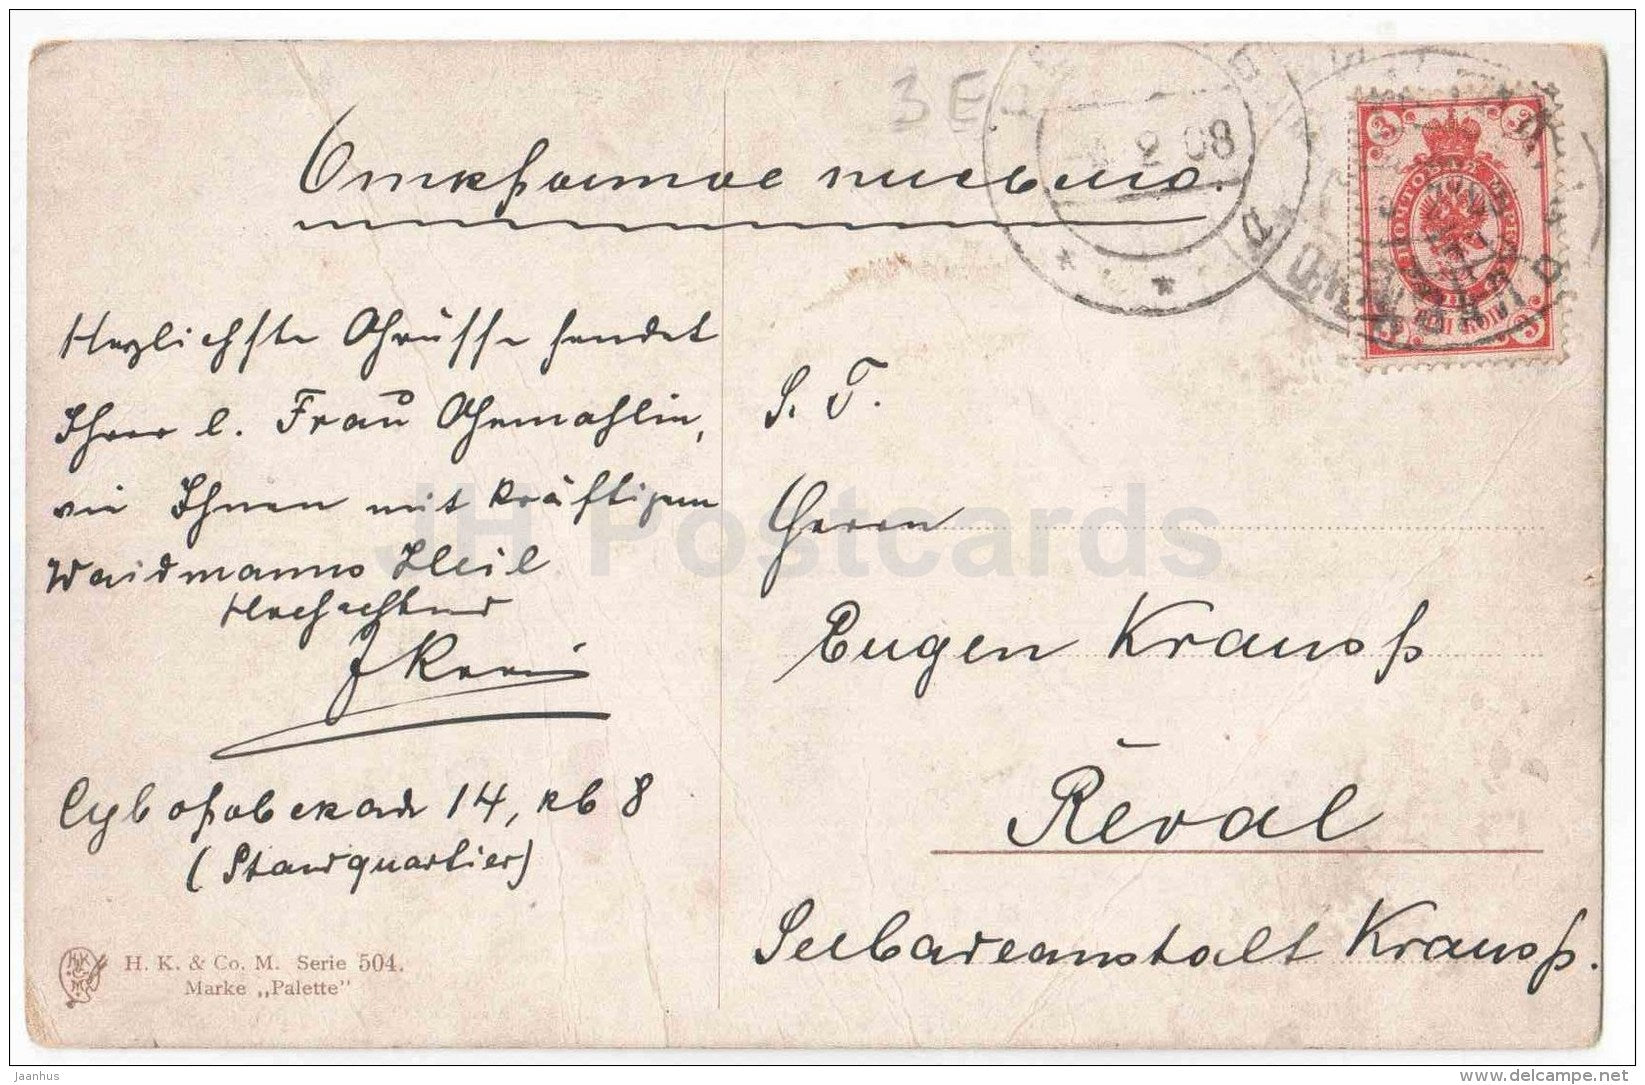 Открытое письмо.
Herzlichste Grüsse sendet
Ihrer l. Frau Gemahlin,
wie Ihnen mit kräftigem
Waidmanns Heil
Hochachtend
Суворовская 14, кв 8
(Standquartier)
H. K. & Co. M. Serie 504.
Marke „Palette"
2 08
3
3
3
3
S. T.
Herrn
Eugen Krauss
Reval
Seebadeanstalt Krauss.
JH Postcards
jaanhus
delcampe.net